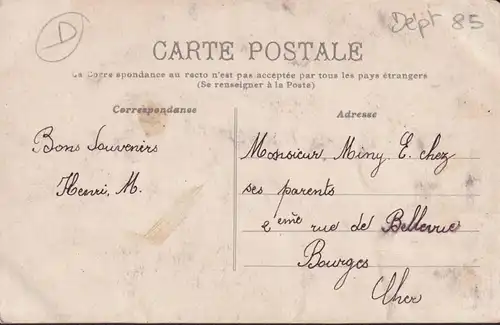 D
Dépt 85
CARTE POSTALE
La Corre spondance au recto n'est pas acceptée par tous les pays étrangers
(Se renseigner à la Poste)
Correspondance
Adresse
Bons Souvenirs
Henri, M.
Monsieur Miny, E. chez
ses parents
2eme rue de Bellevue
Bourges
Cher